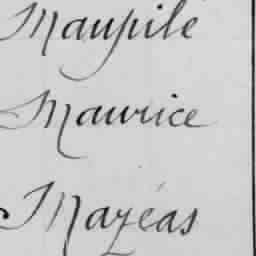 Maupilé
Maurice
Mazéas